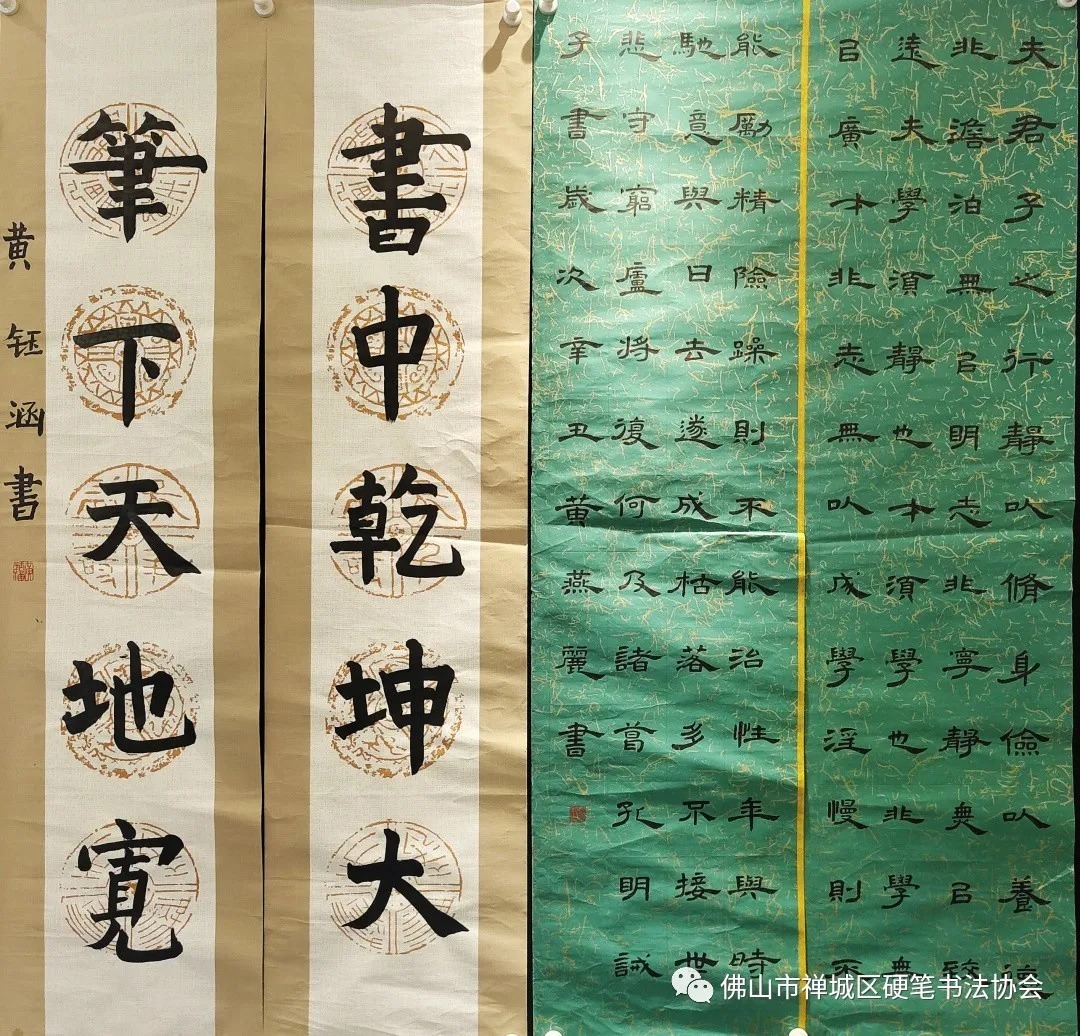 夫君子之行靜以脩身儉以養德
非澹泊無以明志非寧靜無以致
遠夫學須靜也才須學也非學無
以廣才非志無以成學淫慢則不
能勵精險躁則不能治性年與時
馳意與日去遂成枯落多不接世
悲守窮廬將復何及諸葛孔明誡
子書歲次辛丑黃燕麗書
書中乾坤大
筆下天地寬
黄鈺涵書
佛山市禅城区硬笔书法协会